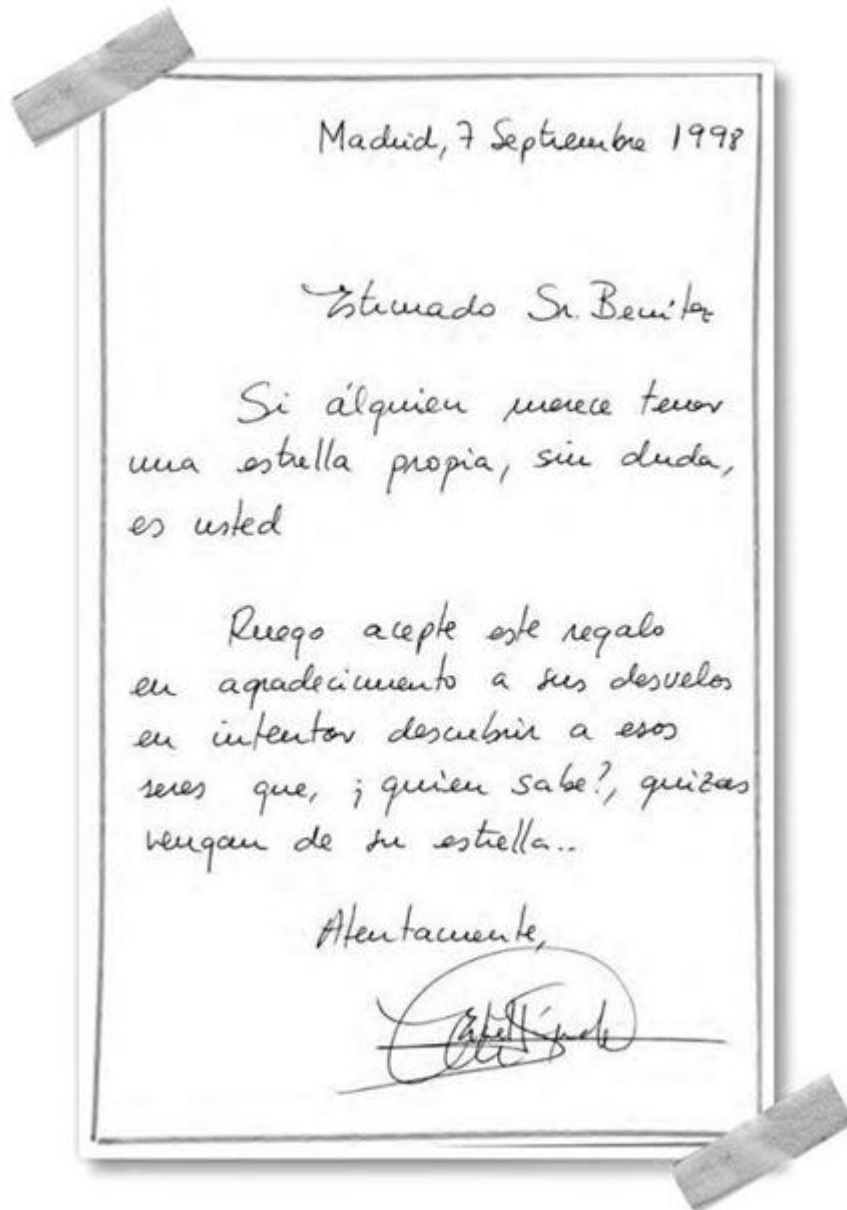 Madrid, 7 Septiembre 1998
Estimado Sr. Benitez
Si álguien merece tener
una estrella propia, sin duda,
es usted
Ruego acepte este regalo
en agradecimiento a sus desvelos
en intentar descubrir a esos
seres que, ¿quien sabe?, quizas
vengan de su estrella..
Atentamente,